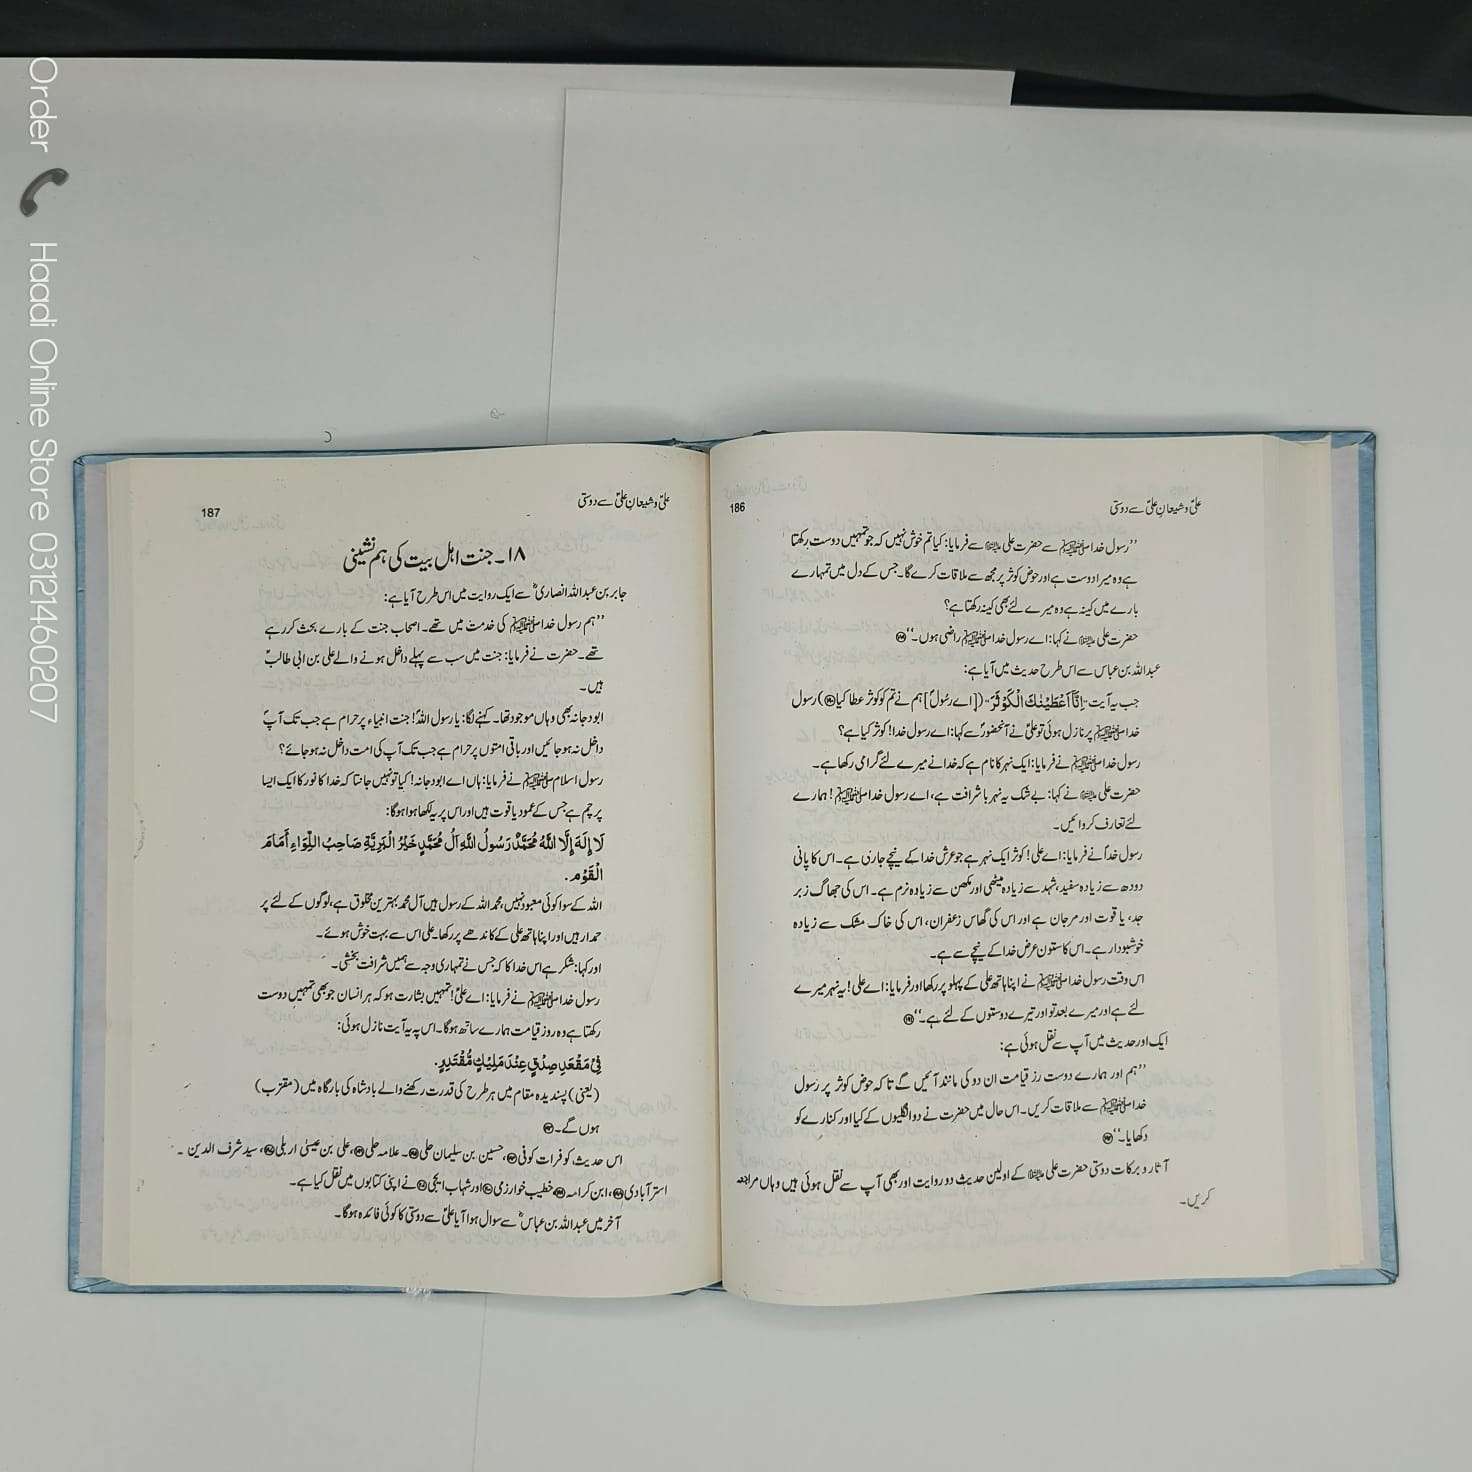 Order
Haadi Online Store 03121460207
186
علیؑ و شیعانِ علیؑ سے دوستی
’’رسول خدا ﷺ سے حضرت علی علیہ السلام سے فرمایا: کیا تم خوش نہیں کہ جو تمہیں دوست رکھتا
ہے وہ میرا دوست ہے اور حوض کوثر پر مجھ سے ملاقات کرے گا۔ جس کے دل میں تمہارے
بارے میں کینہ ہے وہ میرے لئے بھی کینہ رکھتا ہے؟
حضرت علی علیہ السلام نے کہا: اے رسول خدا ﷺ راضی ہوں۔‘‘
عبداللہ بن عباس سے اس طرح حدیث میں آیا ہے:
جب یہ آیت ”اِنَّآ اَعْطَيْنٰكَ الْكَوْثَرَ“ ([اے رسُولؐ] ہم نے تم کو کوثر عطا کیا) رسول
خدا ﷺ پر نازل ہوئی تو علیؑ نے آنحضورؐ سے کہا: اے رسول خدا! کوثر کیا ہے؟
رسول خدا ﷺ نے فرمایا: ایک نہر کا نام ہے کہ خدا نے میرے لئے گرامی رکھا ہے۔
حضرت علی علیہ السلام نے کہا: بے شک یہ نہر با شرافت ہے، اے رسول خدا ﷺ! ہمارے
لئے تعارف کروائیں۔
رسول خداؐ نے فرمایا: اے علی! کوثر ایک نہر ہے جو عرش خدا کے نیچے جاری ہے۔ اس کا پانی
دودھ سے زیادہ سفید، شہد سے زیادہ میٹھی اور مکھن سے زیادہ نرم ہے۔ اس کی جھاگ زبر
جد، یاقوت اور مرجان ہے اور اس کی گھاس زعفران، اس کی خاک مشک سے زیادہ
خوشبودار ہے۔ اس کا ستون عرض خدا کے نیچے سے ہے۔
اس وقت رسول خدا ﷺ نے اپنا ہاتھ علی کے پہلو پر رکھا اور فرمایا: اے علی! یہ نہر میرے
لئے ہے اور میرے بعد تو اور تیرے دوستوں کے لئے ہے۔‘‘
ایک اور حدیث میں آپ سے نقل ہوئی ہے:
’’ہم اور ہمارے دوست رز قیامت ان دو کی مانند آئیں گے تا کہ حوض کوثر پر رسول
خدا ﷺ سے ملاقات کریں۔ اس حال میں حضرت نے دو انگلیوں کے کیا اور کنارے کو
دکھایا۔‘‘
آثار و برکات دوستی حضرت علی علیہ السلام کے اولین حدیث دو روایت اور بھی آپ سے نقل ہوئی ہیں وہاں مراجعہ
کریں۔
علیؑ و شیعانِ علیؑ سے دوستی
187
۱۸۔ جنت اہل بیت کی ہم نشینی
جابر بن عبداللہ انصاریؓ سے ایک روایت میں اس طرح آیا ہے:
’’ہم رسول خدا ﷺ کی خدمت میں تھے۔ اصحاب جنت کے بارے بحث کر رہے
تھے۔ حضرت نے فرمایا: جنت میں سب سے پہلے داخل ہونے والے علی بن ابی طالبؑ
ہیں۔
ابودجانہ بھی وہاں موجود تھا۔ کہنے لگا: یا رسول اللہ! جنت انبیاء پر حرام ہے جب تک آپؐ
داخل نہ ہو جائیں اور باقی امتوں پر حرام ہے جب تک آپ کی امت داخل نہ ہو جائے؟
رسول اسلام ﷺ نے فرمایا: ہاں اے ابو دجانہ! کیا تو نہیں جانتا کہ خدا کا نور کا ایک ایسا
پرچم ہے جس کے عمود یاقوت ہیں اور اس پر یہ لکھا ہوا ہوگا:
لَا إِلٰهَ إِلَّا اللّٰهُ مُحَمَّدٌ رَسُولُ اللّٰهِ آلُ مُحَمَّدٍ خَيْرُ الْبَرِيَّةِ صَاحِبُ اللِّوَاءِ أَمَامَ
الْقَوْمِ.
اللہ کے سوا کوئی معبود نہیں، محمد اللہ کے رسول ہیں آل محمد بہترین مخلوق ہے، لوگوں کے لئے پر
حمدار ہیں اور اپنا ہاتھ علی کے کاندھے پر رکھا۔ علی اس سے بہت خوش ہوئے۔
اور کہا: شکر ہے اس خدا کا کہ جس نے تمہاری وجہ سے ہمیں شرافت بخشی۔
رسول خدا ﷺ نے فرمایا: اے علیؑ! تمہیں بشارت ہو کہ ہر انسان جو بھی تمہیں دوست
رکھتا ہے وہ روز قیامت ہمارے ساتھ ہوگا۔ اس پہ یہ آیت نازل ہوئی:
فِيْ مَقْعَدِ صِدْقٍ عِنْدَ مَلِيْكٍ مُّقْتَدِرٍ.
(یعنی) پسندیدہ مقام میں ہر طرح کی قدرت رکھنے والے بادشاہ کی بارگاہ میں (مقرّب)
ہوں گے۔
اس حدیث کو فرات کوفی، حسین بن سلیمان حلی۔ علامہ حلی، علی بن عیسیٰ اربلی، سید شرف الدین ۔
استرآبادی، ابن کرامہ خطیب خوارزمی اور شہاب ایجی نے اپنی کتابوں میں نقل کیا ہے۔
آخر میں عبداللہ بن عباسؓ سے سوال ہوا آیا علیؑ سے دوستی کا کوئی فائدہ ہوگا۔